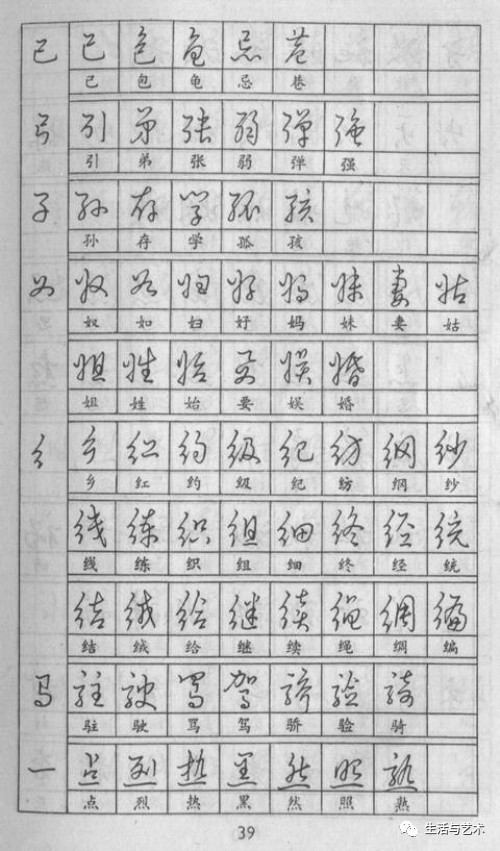 己 己 包 龟 忌 巷
己 包 龟 忌 巷
弓 引 弟 张 弱 弹 强
引 弟 张 弱 弹 强
子 孙 存 学 孤 孩
孙 存 学 孤 孩
女 奴 如 妇 好 妈 妹 妻 姑
奴 如 妇 好 妈 妹 妻 姑
姐 姓 始 要 娱 婚
姐 姓 始 要 娱 婚
纟 乡 红 约 级 纪 纺 纲 纱
乡 红 约 级 纪 纺 纲 纱
线 练 织 组 细 终 经 统
线 练 织 组 细 终 经 统
结 绒 给 继 续 绳 绸 编
结 绒 给 继 续 绳 绸 编
马 驻 驶 骂 驾 骄 验 骑
驻 驶 骂 驾 骄 验 骑
一 点 烈 热 黑 然 照 熟
点 烈 热 黑 然 照 熟
39
生活与艺术